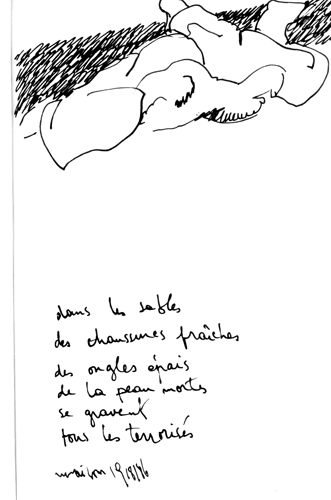 dans les sables
des chaussures fraîches
des ongles épais
de la peau mortes
se gravent
tous les terrorisés